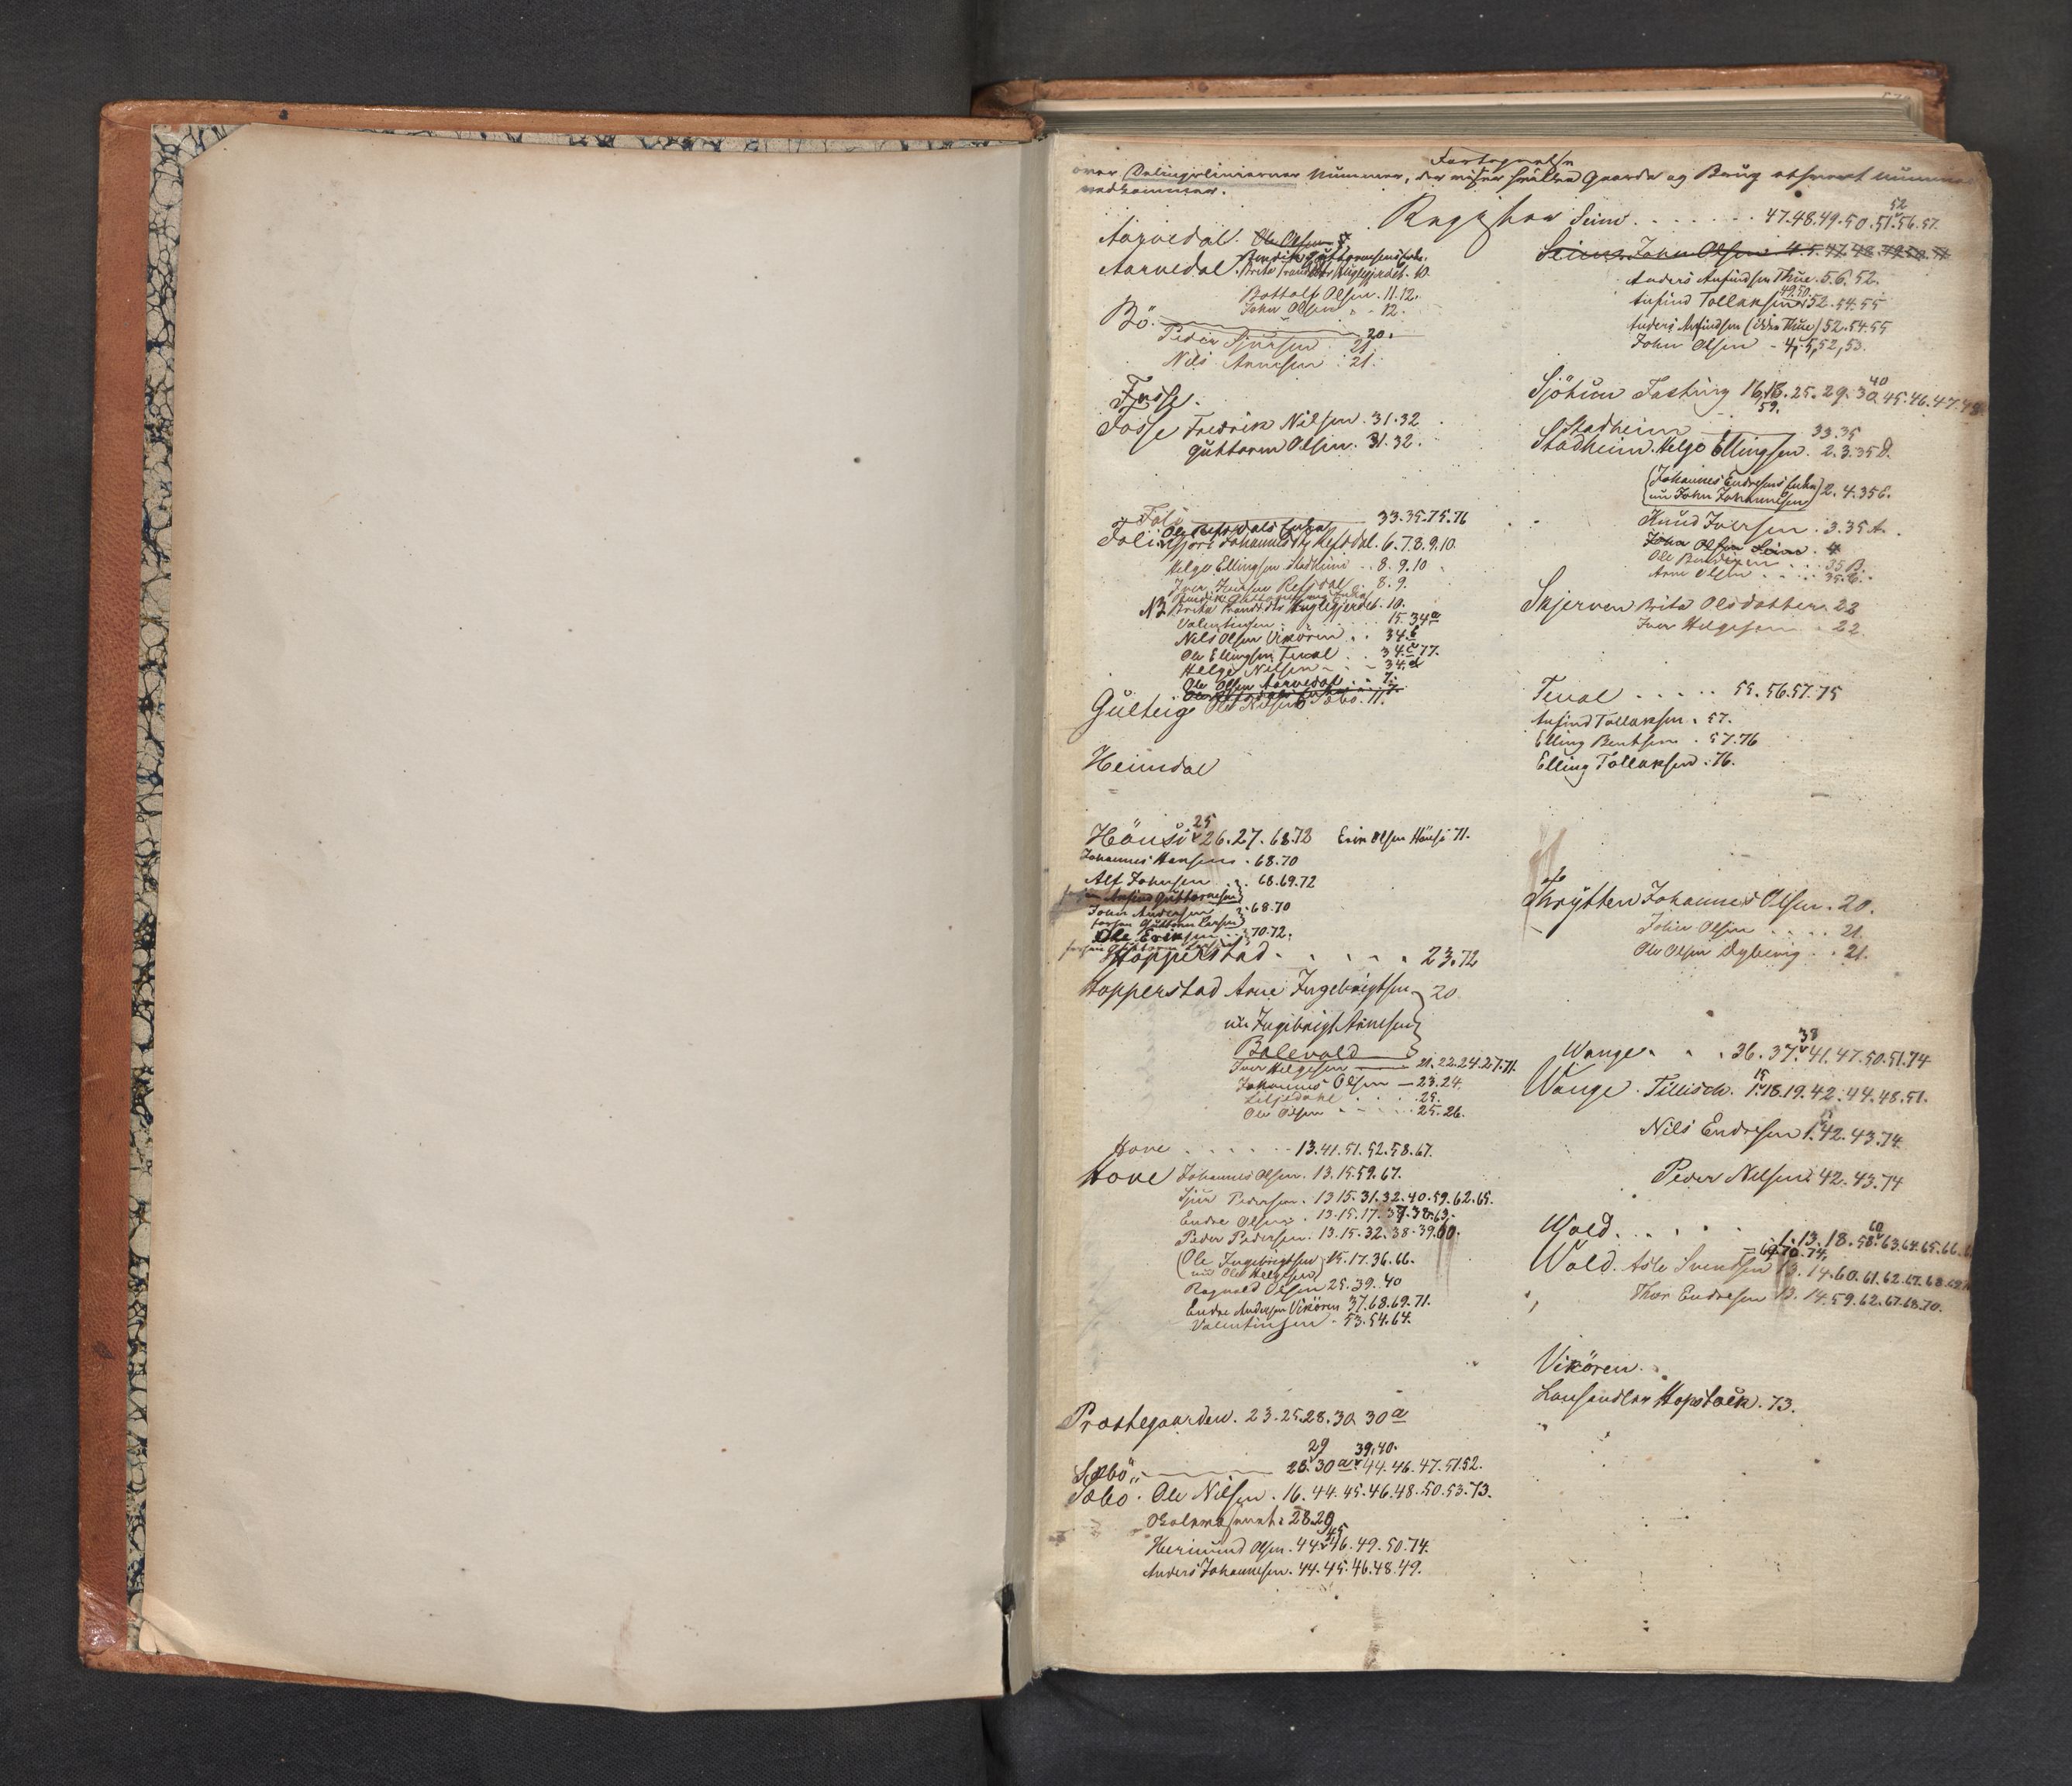 Fortegnelse
over Delingslinierner Nummer, der viser hvilke Gaarde og Brug ethvert Nummer
vedkommer.
Register
Aarvedal. Ole Olsen
Aarvedal. Brita Huglegjerdet. 10.
Bottolf Olsen. 11.12.
John Olsen - - 12.
Bö. 20.
Peder Sjursen 21.
Nils Arnesen . 21.
Fosse.
Fosse Fredrik Nilsen. 31.32
Guttorm Olsen. 31.32.
Foli 33.35.75.76
Ole Refsdals Enke
Foli Johannesdtr Refsdal. 6.7.8.9.10.
Helge Ellingsen Stadheim . . 8. 9. 10
Iver Iversen Refsdal . 8. 9.
NB Brita Huglegjerdet. 10.
Valentinsen . 15. 34a
Nils Olsen Vikören . . 34.b
Ole Ellingsen Tenal . . 34.c 77.
Helge Nilsen - - - 34.d
Ole Olsen Aarvedal . . 7.
Gulteig Ole Nilsen Säbö. 11.
Heimdal
Hönsi 25 26.27.68.72 Erik Olsen Hönsi 71.
Johannes Hansen . 68.70
Alf Johnsen . . 68.69.72
Anfind Guttormsen
John Andersen 68.70
forhen Guttorm Larsen
Ole Eriksen . . 70.72.
Hopperstad . . . . . 23.72
Hopperstad Arne Ingebrigtsen 20
nu Ingebrigt Arnesen
Bolevold
Iver Helgesen 21.22.24.27.71.
Johannes Olsen - 23.24.
Liljedahl . . . 25.
Ole Olsen - - - - 25.26.
Hove . . . . . 13.41.51.52.58.67.
Hove Johannes Olsen. 13.15.59.67.
Sjur Pedersen. 13 15.31.32.40.59.62.65.
Endre Olsen . 13.15.17.37.38.63.
Peder Pedersen. 13.15.32.38.39.60.
(Ole Ingebrigtsen 15.17.36.66.
nu Ole Helgesen)
Ragnvald Olsen 25.39.40
Endre Andersen Vikören 37.68.69.71.
Valentinsen - 53.54.64.
Præstegaarden. 23.25.28.30 30a
29 39.40.
Sæbö 28.30a.44.46.47.51.52.
Sæbö. Ole Nilsen. 16.44.45.46.48.50.53.73.
28.29
45
Hermund Olsen. 44.46.49.50.74.
Anders Johannesen. 44.45.46.48.49.
52
Seim . . . . . . . 47.48.49.50.51.56.57.
Seim John Olsen 4.5.47.48.49.50.
Anders Anfindsen Thue. 5.6.52.
49.50.
Anfind Tollaksen 52.54.55
Anders Anfindsen (Thue) 52.54.55
John Olsen - 4,5,52,53.
40
Sjötun Fasting 16.18.25.29.30 45.46.47.48
59.
Stadheim 33.35
Stadheim. Helge Ellingsen. 2.3.35 D.
(Johannes Endresens Enke
nu John Johannesen) 2.4.35 E.
Knud Iversen . 3.35 A.
John Olsen Seim . 4
Ole Bendixen . . . 35 B.
Arne Olsen . . . . 35.C.
Skjerven Brita Olsdatter. 22
Iver Helgesen . 22.
Tenal . . . . . 55.56.57.75
Anfind Tollaksen . 57.
Elling Bentsen . 57.76
Elling Tollaksen . 76.
Thrytten Johannes Olsen. 20.
John Olsen . . . . 21.
Ole Olsen Dybevig . . 21.
38
Wange . . . 36.37.41.47.50.51.74
15
Wange. Tillisch. 1.18.19.42.44.48.51.
Nils Endresen 1.42.43.74.
Peder Nilsen 42.43.74
60
Wold . . . . 1.13.18.58.63.64.65.66.
69.70.74.
Wold. Asle Svendsen 13.14.60.61.62.67.68.69.
Thor Endresen 13.14.59.62.67.68.70.
Vikören.
Landhandler Hopstock. 73.